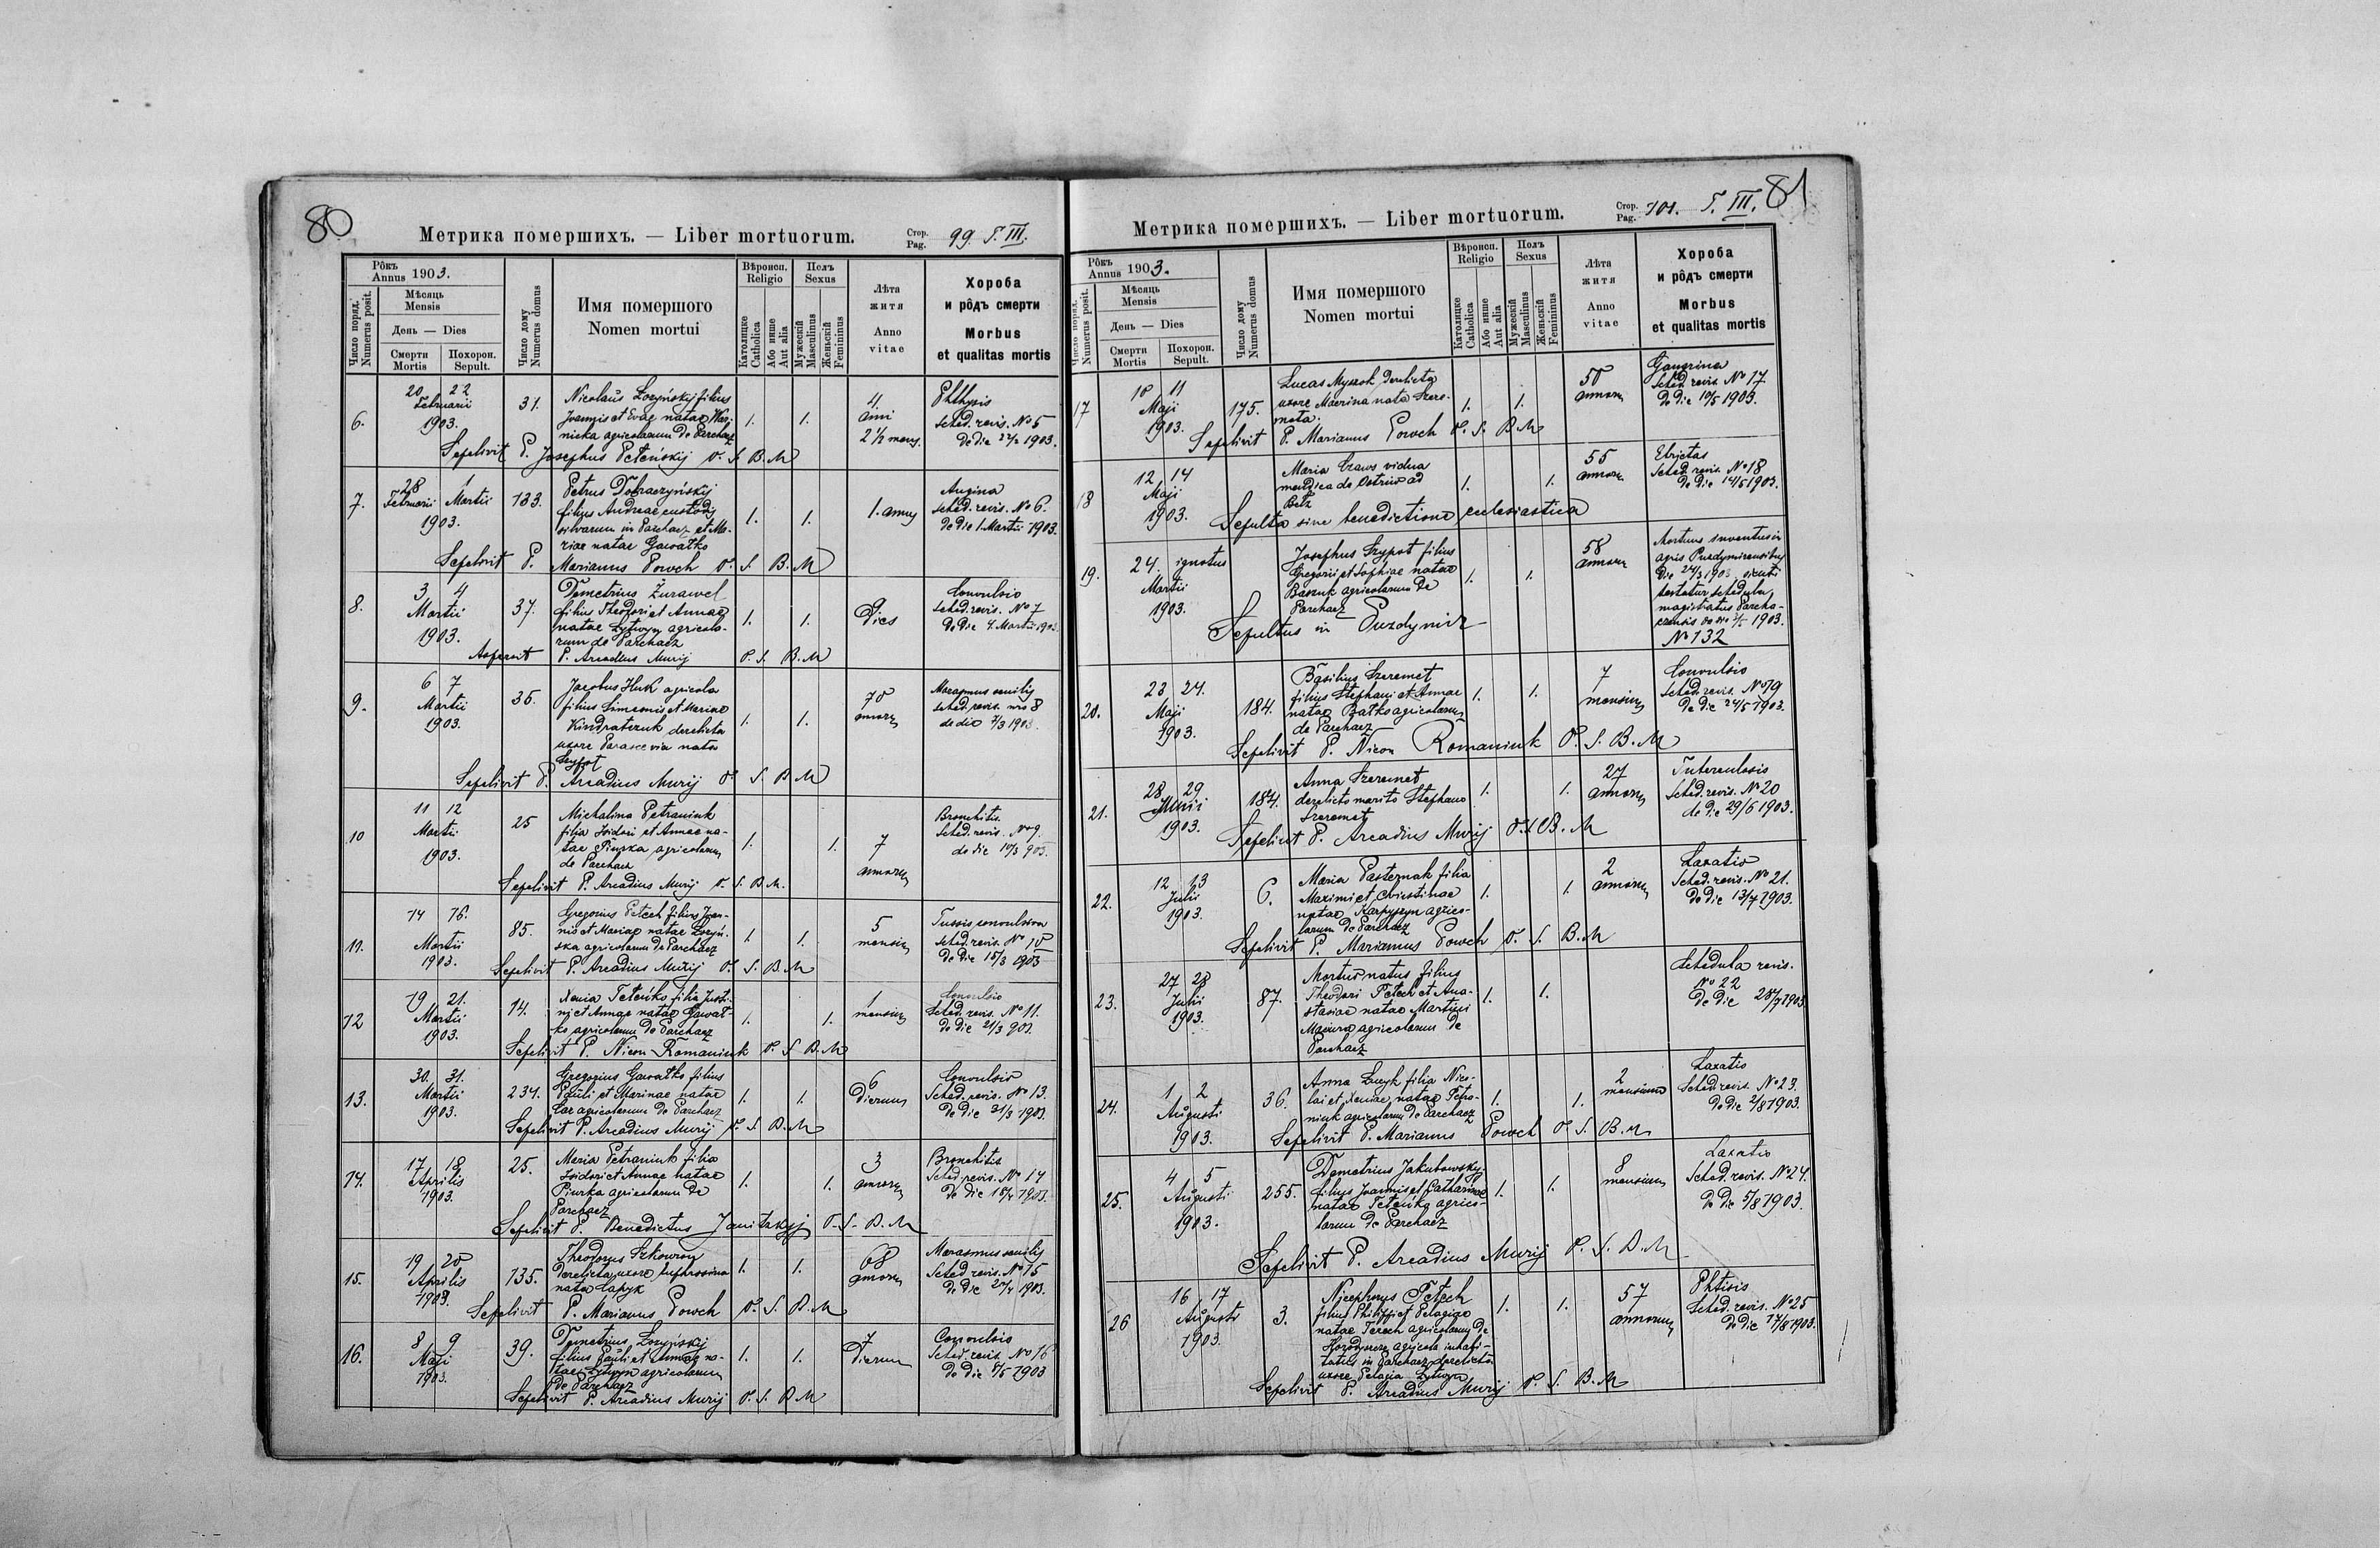 80
Метрика померших. — Liber mortuorum.
Стор. Pag. 99. T. III.
Рôкъ Annus 1903.
Мѣсяць Mensis
День — Dies
Число поряд. Numerus posit.
Смерти Mortis
Похорон. Sepult.
Число дому Numerus domus
Имя помершого
Nomen mortui
Вѣроисп. Religio
Католицке Catholica
Або инше Aut alia
Полъ Sexus
Мужескій Masculinus
Женьскій Femininus
Лѣта житя
Anno vitae
Хороба и рôдъ смерти
Morbus et qualitas mortis
6.
20 22
Februarii
1903.
31.
Nicolaus Łozyńskyj filius
Joannis et Evae natae
agricolarum de Parchacz
1. 1.
4
anni
2 1/2 mens.
Phthysis
Sched. revis. No 5
De die 22/2 1903.
Sepelivit P. Josephus O. S. B. M
7.
28 1
Februarii Martii
1903.
133.
Petrus Dobraczyńskij
filius Andreae custodis
silvarum in Parchacz et Ma-
riae natae Gawałko
1. 1.
1. annus
Angina
Sched. revis. No 6.
De die 1. Martii 1903.
Sepelivit P. Marianus Powch O. S. B. M
8.
3 4
Martii
1903.
37.
Demetrius Żurawel
filius Theodori et Annae
natae Łytwyn agricola-
rum de Parchacz
1. 1.
9.
Dies
Convulsio
Sched. revis. No 7
De die 4. Martii 1903.
P. Arcadius Muryj O. S. B. M
9.
6 7
Martii
1903.
35.
Jacobus Huk agricola
filius Simeonis et Marinae
Kindratczuk derelicta
uxore Parascevia nata
Szypot
1. 1.
70
annorum
Marasmus senilis
sched. revis. nro 8
de die 7/3 1903.
Sepelivit P. Arcadius Muryj O. S. B. M
10
11 12
Martii
1903.
25
Michalina Petraniuk
filia Isidori et Annae na-
tae Piurka agricolarum
de Parchacz
1. 1.
7
annorum
Bronchitis.
Sched. revis. No 9.
de die 10/3 903.
Sepelivit P. Arcadius Muryj O. S. B. M.
11.
14 16.
Martii
1903.
85.
Gregorius Petech filius Joan-
nis et Mariae natae Łozyń-
ska agricolarum de Parchacz
1. 1.
5
mensium
Tussis convulsiva
Sched. revis. No 10
De die 15/3 1903
Sepelivit P. Arcadius Muryj O. S. B. M
12
19 21.
Martii
1903.
14.
Xenia Teteńko filia Justi-
ni et Annae natae Gawał-
ko agricolarum de Parchacz
1. 1.
1
mensium
Convulsio
Sched. revis. No 11.
De die 21/3 903.
Sepelivit P. Nicon Romaniuk O. S. B. M
13.
30. 31.
Martii
1903.
234.
Gregorius Gawałko filius
Pauli et Marinae natae
Car agricolarum de Parchacz
1. 1.
6
Dierum
Convulsio
Sched. revis. No 13.
De die 31/3 1903.
Sepelivit P. Arcadius Muryj O. S. B. M
14.
17 18
Aprilis
1903.
25.
Maria Petraniuk filia
Isidori et Annae natae
Piurka agricolarum de
Parchacz
1. 1.
3
annorum
Bronchitis
Sched. revis. No 14
De die 18/4 1903.
Sepelivit P. Benedictus O. S. B. M
15.
19 20
Aprilis
1903.
135.
Theodorus Szkowron
derelicta uxore Euphrosina
nata Łapyk
1. 1.
68
annorum
Marasmus senilis
Sched. revis. No 15
De die 20/4 1903.
Sepelivit P. Marianus Powch O. S. B. M
16.
8 9
Maji
1903.
39.
Demetrius Łozyńskij
filius Pauli et Annae na-
tae Łytwyn agricolarum
de Parchacz
1. 1.
7
Dierum
Convulsio
Sched. revis. No 16
De die 8/5 1903
Sepelivit P. Arcadius Muryj O. S. B. M
81
Метрика померших. — Liber mortuorum.
Стор. Pag. 101. T. III.
Рôкъ Annus 1903.
Мѣсяць Mensis
День — Dies
Число поряд. Numerus posit.
Смерти Mortis
Похорон. Sepult.
Число дому Numerus domus
Имя помершого
Nomen mortui
Вѣроисп. Religio
Католицке Catholica
Або инше Aut alia
Полъ Sexus
Мужескій Masculinus
Женьскій Femininus
Лѣта житя
Anno vitae
Хороба и рôдъ смерти
Morbus et qualitas mortis
17
10 11
Maji
1903.
175.
Lucas Myszok derelicta
uxore Macrina nata Szere-
meta.
1. 1.
50
annorum
Gangrina
Sched. revis. No 17
De die 10/5 1903.
Sepelivit P. Marianus Powch O. S. B. M
18
12 14
Maji
1903.
Maria Craws vidua
mendica de Ostrów ad
Bełz
1. 1.
55
annorum
Ebrietas
Sched. revis. No 18
De die 14/5 1903.
Sepulta sine benedictione ecclesiastica
19.
24. ignotus
Martii
1903.
Josephus Szypot filius
Gregorii et Sophiae natae
Baszuk agricolarum de
Parchacz
1. 1.
58
annorum
Mortuus inventus in
agris Puzdymirensibus
Die 24/3 1903, sicuti
testatur schedula
magistratus Parcha-
censis 1903.
No 132
Sepultus in Puzdymir
20.
23 24.
Maji
1903.
184.
Basilius Szeremet
filius Stephani et Annae
natae Bałko agricolarum
de Parchacz
1. 1.
7
mensium
Convulsio
Sched. revis. No 19
De die 24/5 1903.
Sepelivit P. Nicon Romaniuk O. S. B. M
21.
28 29
1903.
184.
Anna Szeremet
derelicto marito Stephano
Szeremet
1. 1.
27
annorum
Tuberculosis
Sched. revis. No 20
de die 29/6 1903.
Sepelivit P. Arcadius Muryj O. S. B. M
22.
12 13
Julii
1903.
6.
Maria Pasternak filia
Maximi et Christinae
natae Karpyszyn agrico-
larum de Parchacz
1. 1.
2
annorum
Laxatio
Sched. revis. No 21.
De die 13/7 1903.
Sepelivit P. Marianus Powch O. S. B. M
23.
27 28
Julii
1903.
87.
Mortuo natus filius
Theodori Petech et Ana-
stasiae natae Martyni
Mazura agricolarum de
Parchacz
1. 1.
Schedula revis.
No 22
De die 28/7 1903
24.
1 2
Augusti
1903.
36.
Anna Łucyk filia Nico-
lai et Xeniae natae Petro-
niuk agricolarum de Parchacz
1. 1.
2
mensium
Laxatio
Sched. revis. No 23.
De die 2/8 1903.
Sepelivit P. Marianus Powch O. S. B. M
25.
4 5
Augusti
1903.
255.
Demetrius Jakubowskyj
filius Joannis et Catharinae
natae Teteńko agrico-
larum de Parchacz
1. 1.
8
mensium
Laxatio
Sched. revis. No 24.
De die 5/8 1903.
Sepelivit P. Arcadius Muryj O. S. B. M
26
16 17
Augusti
1903.
3.
Nicephorus Petech
filius Philippi et Pelagiae
natae Terech agricolarum de
agricola inhabi-
tatus in Parchacz derelicta
uxore Pelagia Łytwyn
1. 1.
57
annorum
Phtisis
Sched. revis. No 25
De die 17/8 1903.
Sepelivit P. Arcadius Muryj O. S. B. M